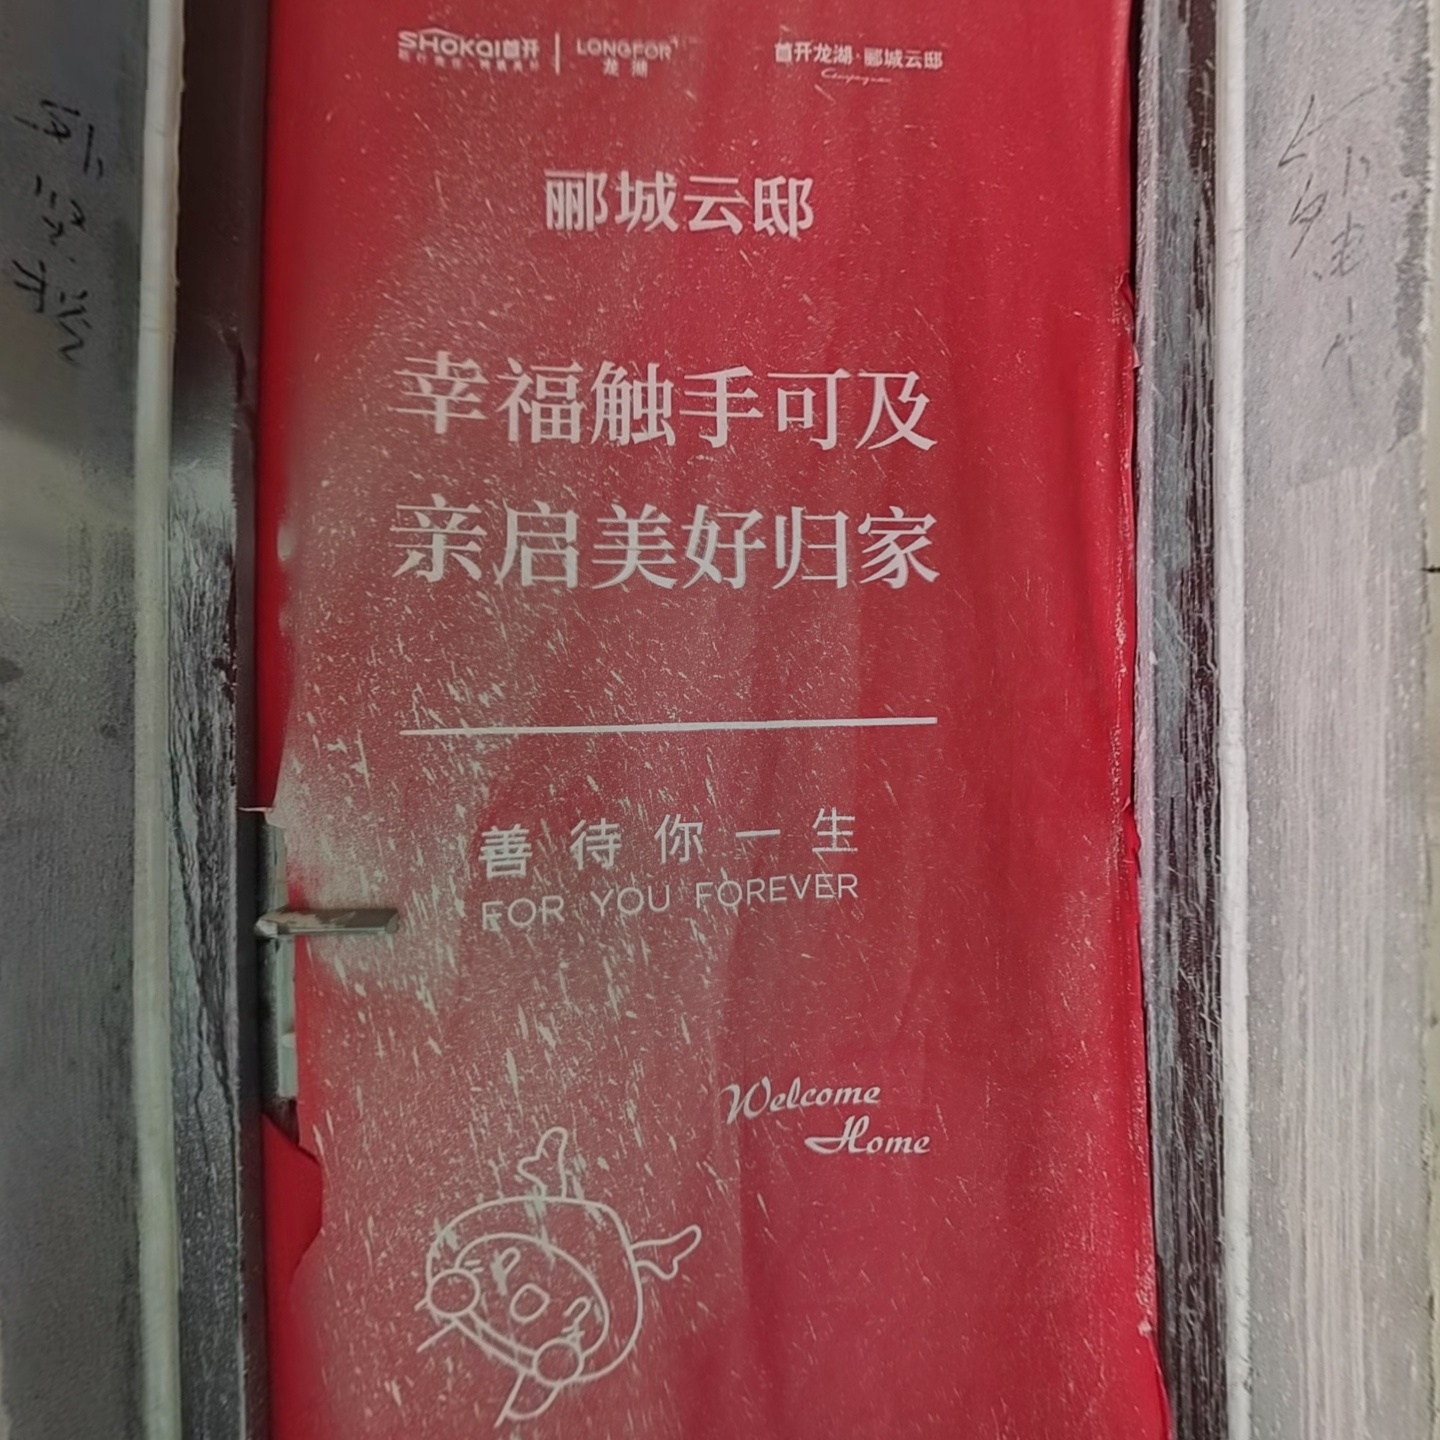 SHOKAI首开 | LONGFOR 龙湖 首开龙湖·郦城云邸
郦城云邸
幸福触手可及
亲启美好归家
善待你一生
FOR YOU FOREVER
Welcome
Home